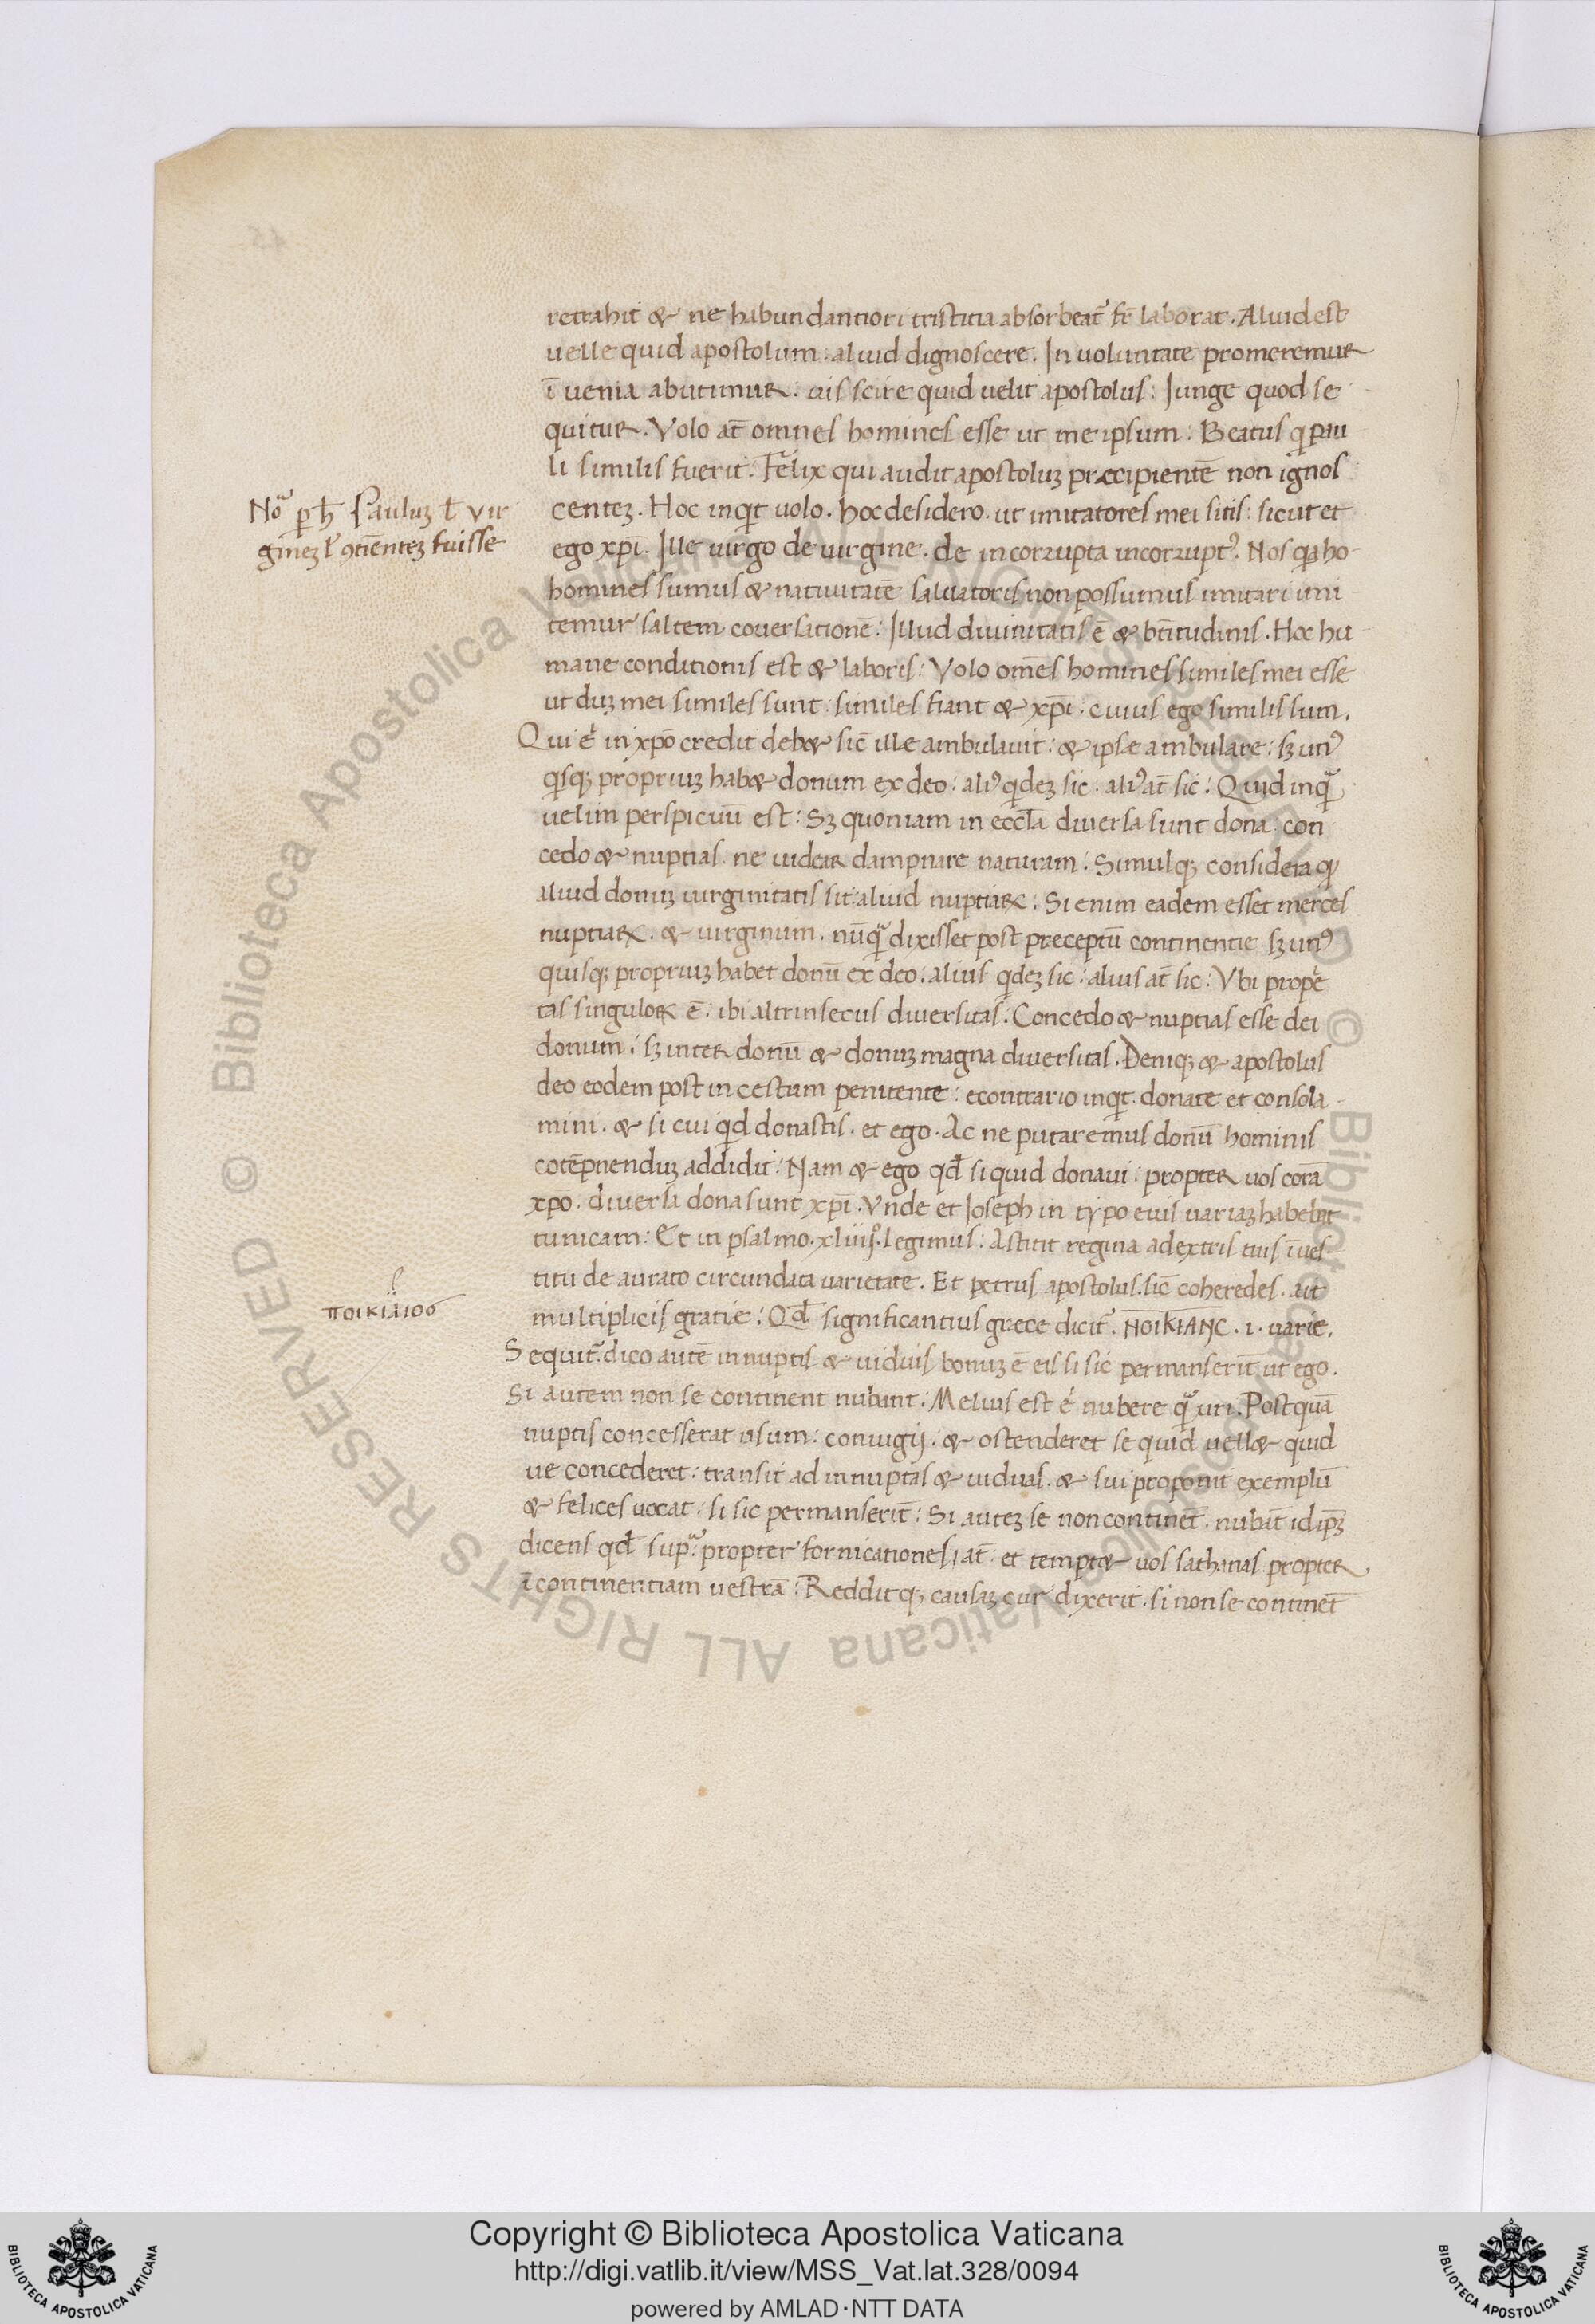 retrahit & ne habundantiori tristitia absorbeat᷑ fr̄ laborat. Aliud est
uelle quid apostolum: aliud dignoscere. In uoluntate promeremur
ī uenia abutimur: uis scire quid uelit apostolus: Junge quod se
quitur. Volo at̄ omnes homines esse ut me ipsum: Beatus q pau
li similis fuerit: Felix qui audit apostoluꝫ præcipientē non ignos
centeꝫ. Hoc inqt uolo. hoc desidero. ut imitatores mei sitis: sicut et
ego xp̄i. Ille uirgo de uirgine. de incorrupta incorruptꝰ. Nos qa ho-
homines sumus & natiuitatē saluatoris non possumus imitari imi
temur saltem cōuersationē: Illud diuinitatis ē & bt̄itudinis. Hoc hu
mane conditionis est & laboris: Volo om̄es homines similes mei esse
ut duꝫ mei similes sunt: similes fiant & xp̄i. cuius ego similis sum.
Qui e in xp̄o credit deb& sic̄ ille ambulauit: & ipse ambulare: sꝫ unꝰ
qsqꝫ propriuꝫ hab& donum ex deo: aliꝰ qdeꝫ sic: aliꝰ at̄ sic: Quid inq
uelim perspicuū est: Sꝫ quoniam in eccl̄a diuersa sunt dona: con
cedo & nuptias: ne uidear dampnare naturam: Simulqꝫ considera qꝫ
aliud donuꝫ uirginitatis sit: aliud nuptiaꝝ: Si enim eadem esset merces
nuptiaꝝ. & uirginum. nūq dixisset post preceptū continentie sꝫ unꝰ
quisqꝫ propriuꝫ habet donū ex deo: alius qdeꝫ sic: alius at̄ sic: Vbi prope
tas singuloꝝ ē: ibi altrinsecus diuersitas: Concedo & nuptias esse dei
donum: sꝫ inter donū & donuꝫ magna diuersitas. Deniqꝫ & apostolus
deo eodem post incestum penitente: econtrario inqt. donate et consola-
mini. & si cui qd donastis. et ego. Ac ne putaremus donū hominis
cōtēpnenduꝫ addidit: Nam & ego qd̄ si quid donaui: propter uos corā
xp̄o. diuersa dona sunt xp̄i. Vnde et Joseph in typo eius uariaꝫ habebat
tunicam: Et in psalmo. xliiijº. legimus: Astitit regina adextris tuis ī ues
titu de aurato circundata uarietate. Et petrus apostolus. sic̄ coheredes. ait
multiplicis gratie: Qd̄ significantius grece dicit᷑. ΝΟΙΚΙΑΗC. i. uarie.
Sequit᷑. dico autē innuptis & uiduis bonuꝫ ē eis si sic permanserit̄ ut ego.
Si autem non se continent nubant: Melius est e nubere q uri. Postquā
nuptis concesserat usum: coniugij. & ostenderet se quid uell& quid
ue concederet: transit ad innuptas & uiduas. & sui proponit exemplū
& felices uocat: si sic permanserit̄: Si auteꝫ se non continēt. nubāt idipꝫ
dicens qd̄ sup: propter fornicationes; at̄: et tempt& uos sathanas propter
ī continentiam uestrā: Redditqꝫ causaꝫ cur dixerit. si non se continēt
Noᷓ ꝑ h̄ Pauluꝫ ł vir
gineꝫ ł ꝯtiēnteꝫ fuisse
ποικιλιοσ
Copyright © Biblioteca Apostolica Vaticana
http://digi.vatlib.it/view/MSS_Vat.lat.328/0094
powered by AMLAD·NTT DATA
BIBLIOTECA APOSTOLICA VATICANA
BIBLIOTECA APOSTOLICA VATICANA
© Biblioteca Apostolica Vaticana ALL RIGHTS RESERVED © Biblioteca Apostolica Vaticana ALL RIGHTS RESERVED